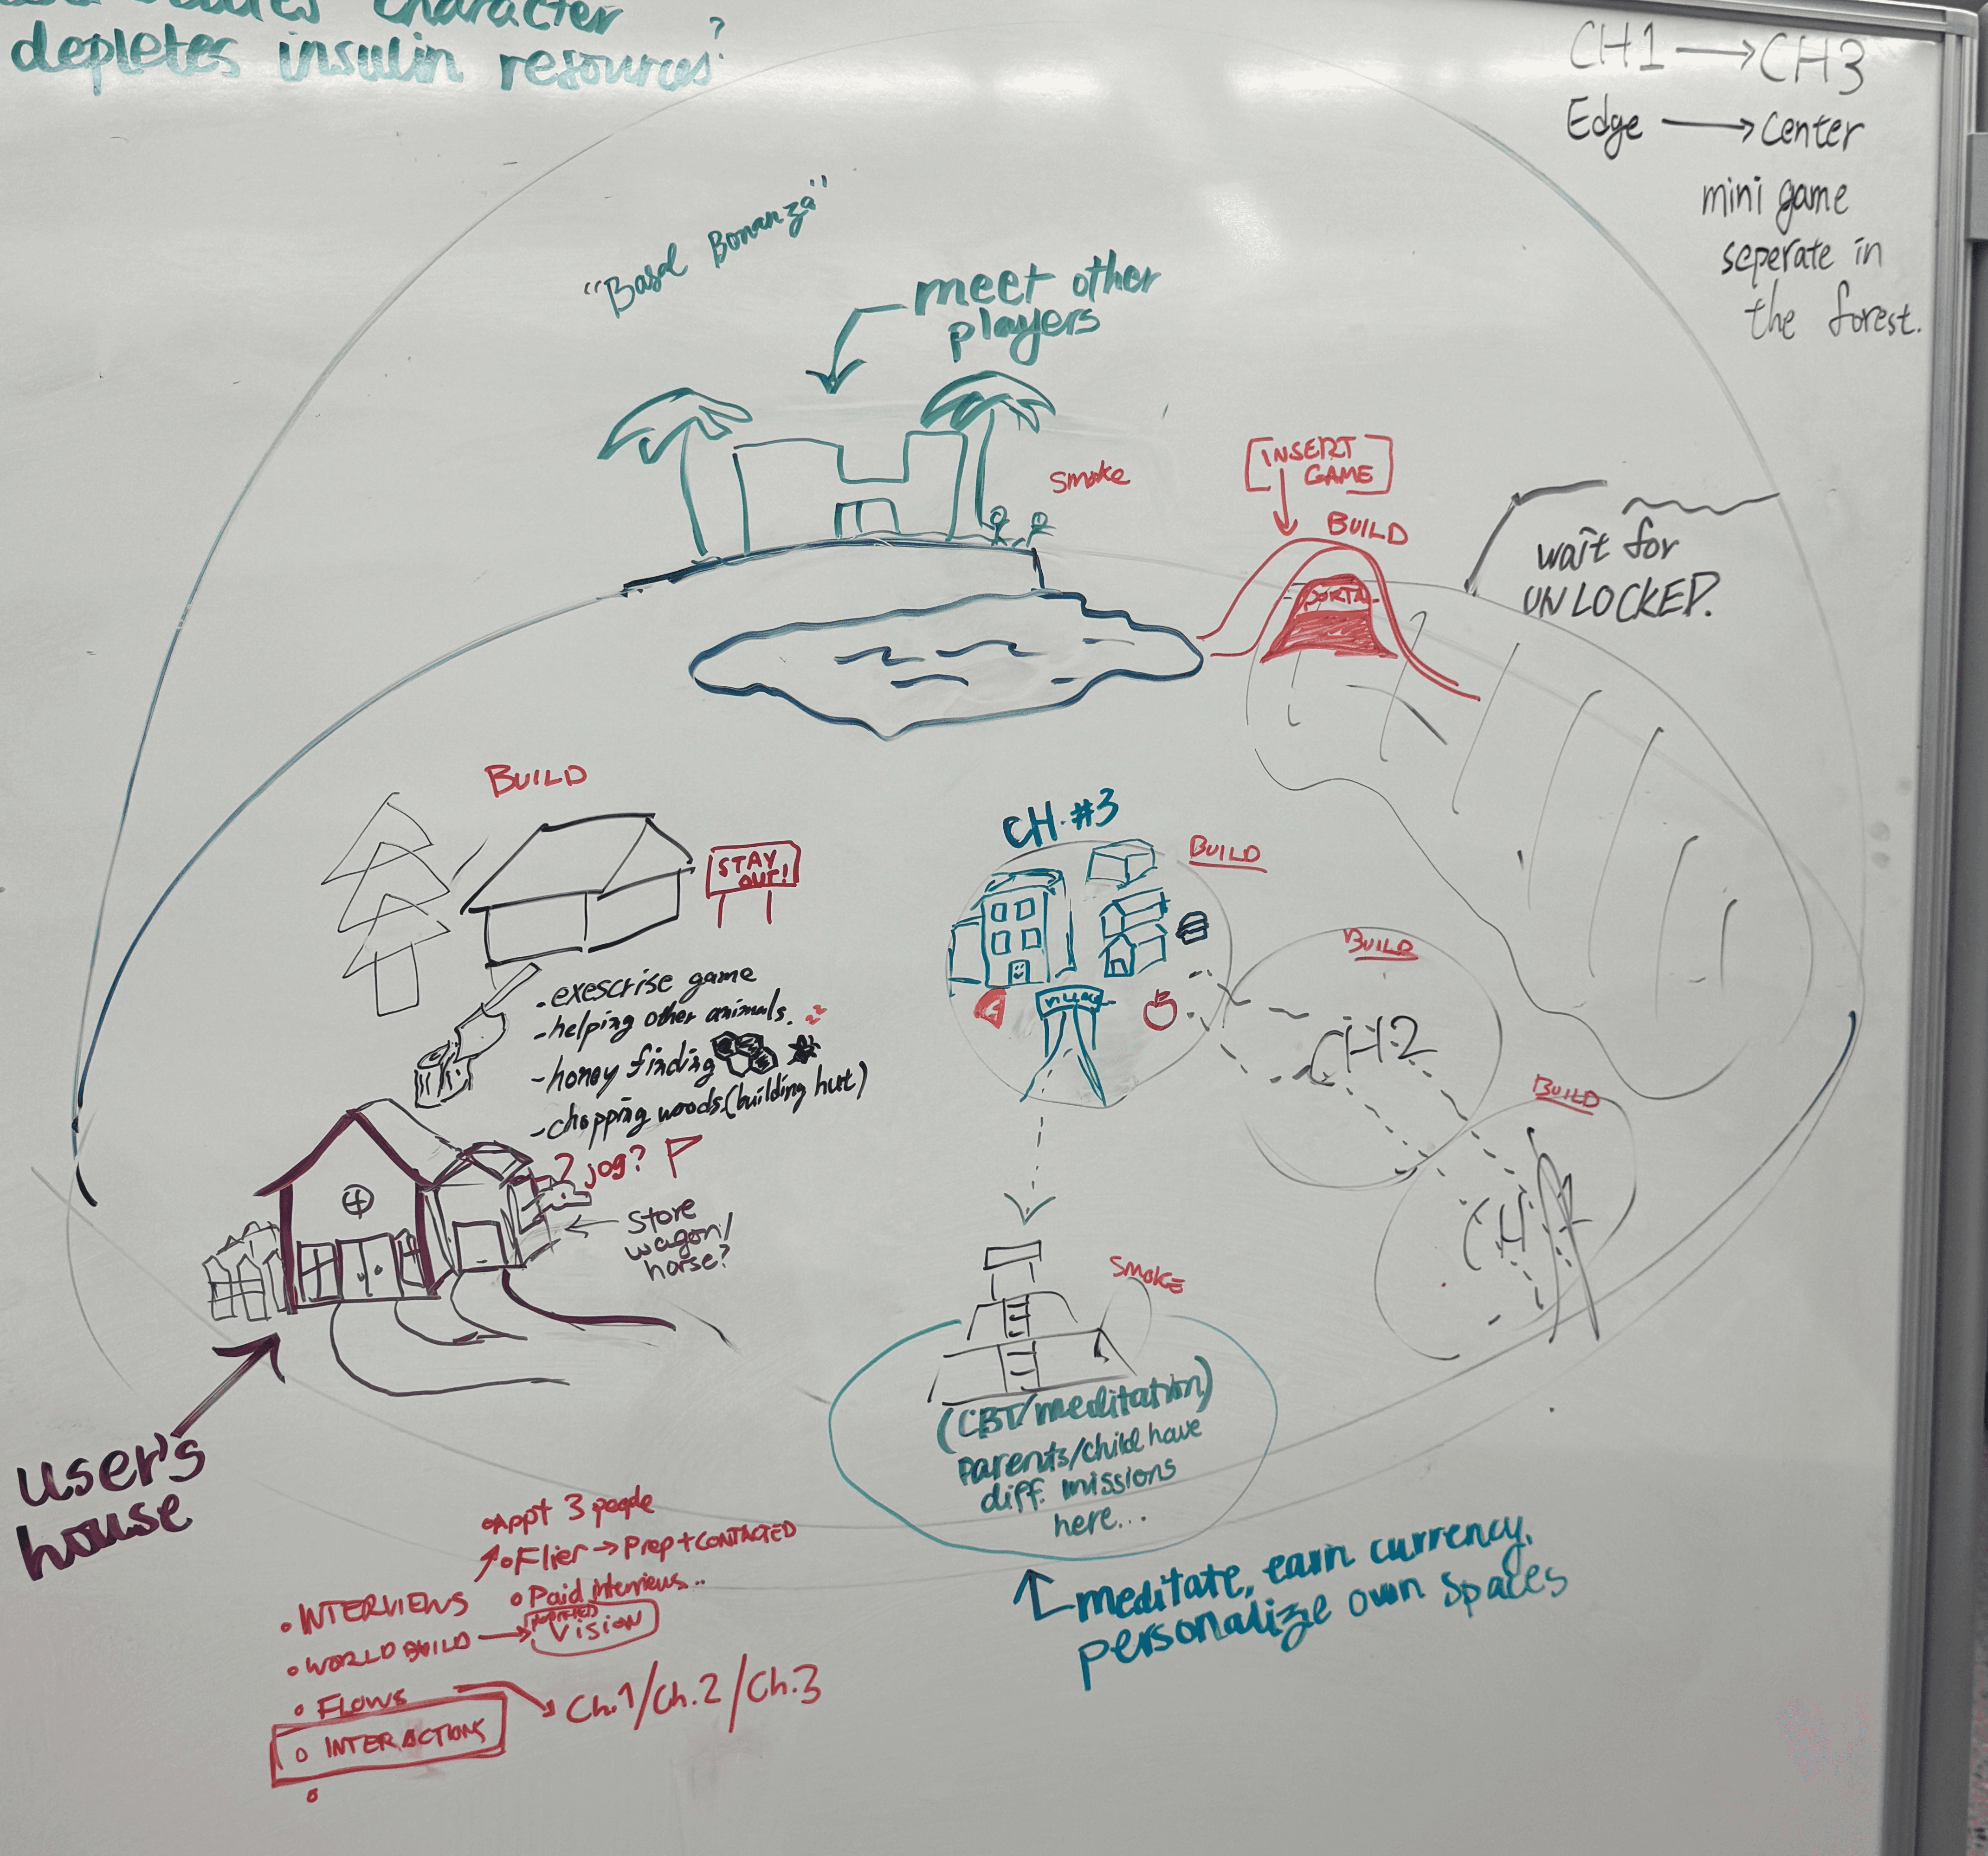 character
depletes insulin resources?
CH1 → CH3
Edge → Center
mini game
seperate in
the forest.
"Basal Bonanza"
meet other
players
smoke
INSERT
GAME
BUILD
PORTAL
wait for
UNLOCKED.
BUILD
STAY
OUT!
- exescrise game
- helping other animals.
- honey finding
- chopping woods.(building hut)
? jog?
store
wagon/
horse?
CH. #3
BUILD
VILLAGE
BUILD
CH.2
BUILD
CH1
SMOKE
(CBT/meditation)
Parents/child have
diff. missions
here...
user's
house
meditate, earn currency,
personalize own spaces
• Appt 3 people
• Flier → Prep + CONTACTED
• Paid interviews..
• INTERVIEWS
• WORLD BUILD → Vision
• FLOWS
Ch.1/Ch.2/Ch.3
○ INTERACTIONS